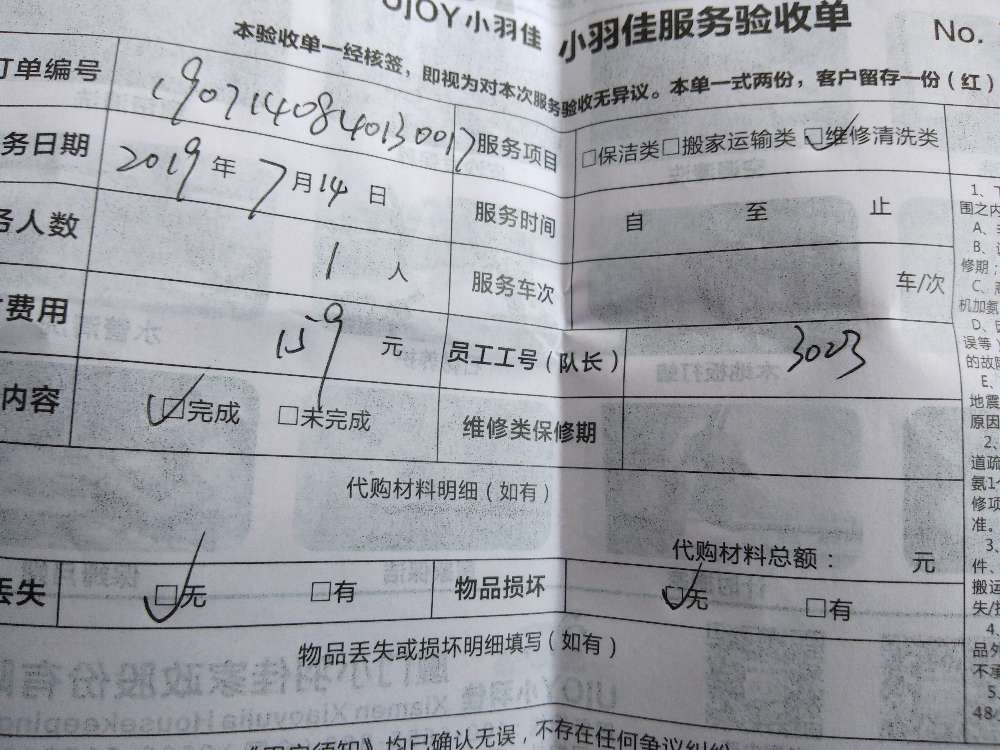 UJOY小羽佳 小羽佳服务验收单 No.
本验收单一经核签，即视为对本次服务验收无异议。本单一式两份，客户留存一份（红）
订单编号 1907140840130017 服务项目 □保洁类□搬家运输类 □维修清洗类
务日期 2019年7月14日 服务时间 自 至 止
务人数 1人 服务车次 车/次
费用 159元 员工工号（队长） 3023
内容 □完成 □未完成 维修类保修期
代购材料明细（如有）
代购材料总额： 元
丢失 □无 □有 物品损坏 □无 □有
物品丢失或损坏明细填写（如有）
均已确认无误，不存在任何争议纠纷
1、
围之内
A、
B、
修期；
C、
机加氨
D、
误等
的故障
E、
地震
原因
2、
道疏
氨1个
修项
准。
3、
件、
搬运
失/
4
品外
不承
5
484